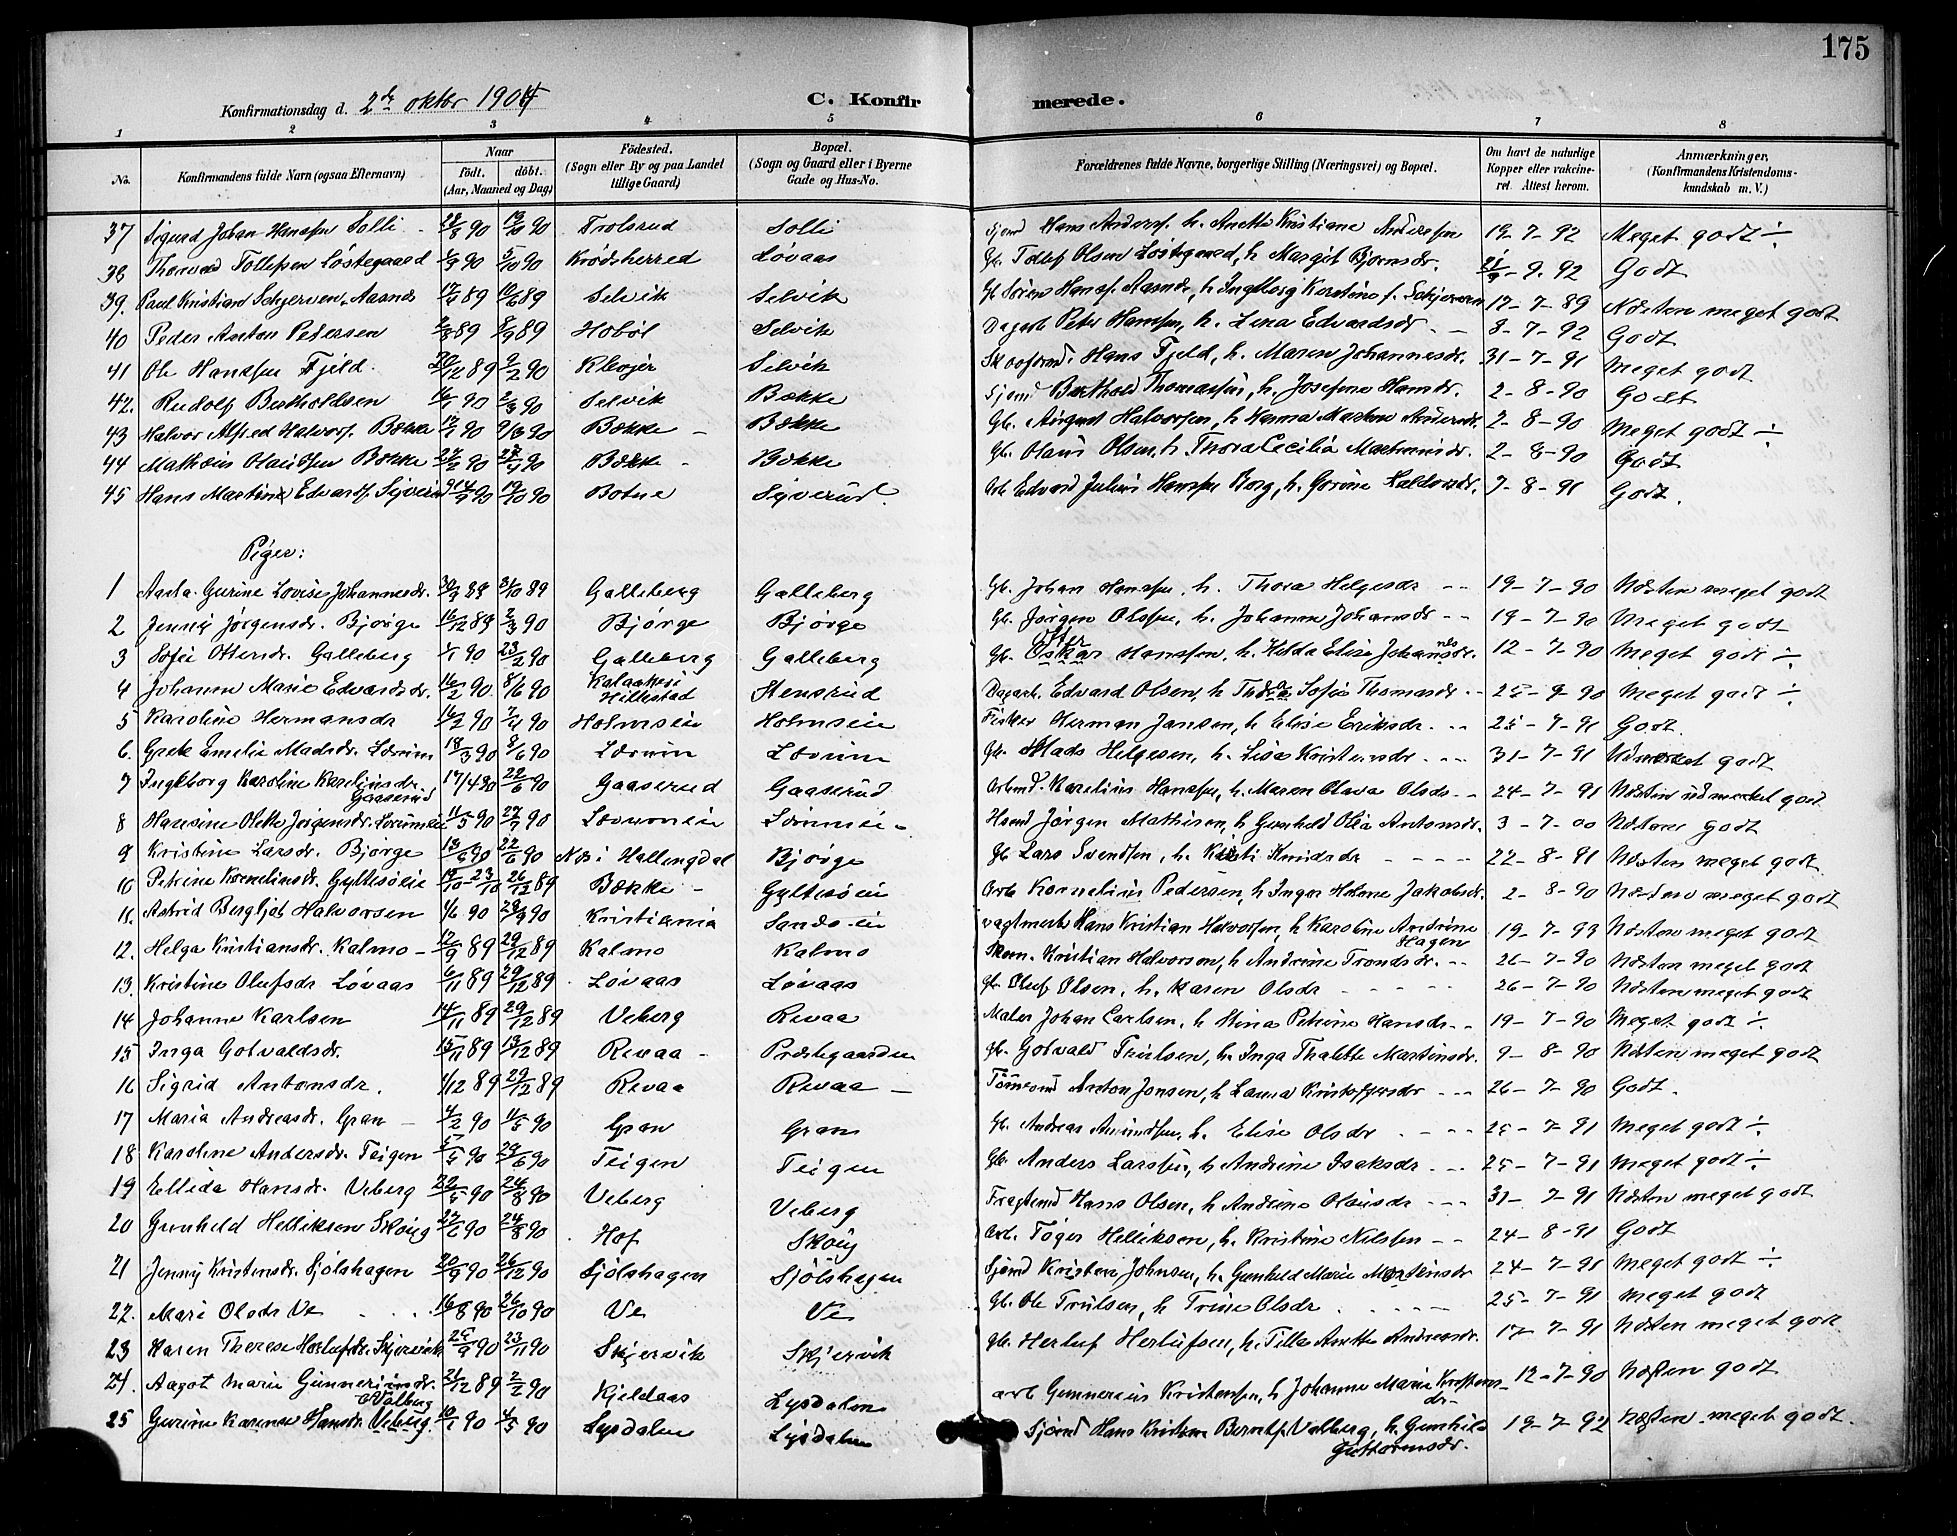 175
Konfirmationsdag d. 2de oktbr 1904
C. Konfirmerede.
1 2 3 4 5 6 7 8
No. Konfirmandens fulde Navn (ogsaa Efternavn) Naar født. døbt. (Aar, Maaned og Dag) Fødested. (Sogn eller By og paa Landet tillige Gaard) Bopæl. (Sogn og Gaard eller i Byerne Gade og Hus-No. Forældrenes fulde Navne, borgerlige Stilling (Næringsvei) og Bopæl. Om havt de naturlige Kopper eller vakcineret. Attest herom. Anmærkninger, (Konfirmandens Kristendomskundskab m. V.)
37 Sigurd Johan Hanssen Solli 90 90 Trolsrud Solli Hans Anderss. h. Anette Kristiane Andersen 19-7-92 Meget godt ÷
38 Thorvald Tollefsen Løstegaard 90 5/10 90 Krødsherred Løvaas Gb. Tollef Olsen Løstegaard, h. Margit Bjørnsdr. 9-92 Godt
39. Paul Kristian Skjerven, Aasnæs 89 89 Selvik Selvik Søren Hanss. Aasnæs, h. Ingeborg Kirstine f. Skjerven 17-7-89 Næsten meget godt
40 Peder Anton Petersen 89 89 Hobøl Selvik Dagarb. Peter Hanssen, h. Lina Edvardsdr. 3-7-92 Godt
41 Ole Hanssen Fjeld. 89 2/2 90 Klevjer Selvik Hans Fjeld, h. Maren Johannesdr. 31-7-91 Meget godt
42. Rudolf Bertholdsen 90 2/3 90 Selvik Bække Sjømd Berthold Thomassen, h. Josefine Hansdr. 2-8-90 Godt
43 Halvor Alfred Halvors. Bække 90 9/3 90 Bække - Bække Gb. August Halvorsen, h. Hanna Martine Andersdr. 2-8-90 Meget godt ÷
44 Mathæus Olaussen Bække 90 90 Bække - Bække Gb. Olaus Olsen, h. Thora Cecilia Mathæusdr. 2-8-90 Godt
45 Hans Martin Edvards. Syverud 90 19/10 90 Botne Syverud. Arb. Edvard Julius Hanssen Borg, h. Gorine Halvorsdr. 7-8-91 Godt.
Piger:
1 Gurine Lovise Johannesdr. 89 89 Galleberg Galleberg Gb. Johan Hanssen, h. Thora Helgesdr 19-7-90 Næsten meget godt
2 Jenny Jørgensdr. Bjørge 16/12 89 2/3 90 Bjørge Bjørge Gb. Jørgen Olssen, h. Johanne Johansdr. 19-7-90 Meget godt
3 Sofie Ottersdr. Galleberg 90 23/2 90 Galleberg Galleberg Gb. Oskar Otter Hanssen, h. Hilda Elise Johannesdr. 12-7-90 Meget godt ÷
4 Johanne Marie Edvardsdr. 16/2 90 8/6 90 Hillestad Hensrud Dagarb. Edvard Olsen, h. Thea Sofie Thomasdr. Meget godt ÷
5 Karoline Hermansdr 16/2 90 7/4 90 Holmseie Holmseie Fisker Herman Jansen, h. Elise Eriksdr. 25-7-91 Godt
6. Grete Emelie Madsdr. Løvum 18/3 90 8/6 90 Løvum Løvum Gb. Mads Helgesen, h. Lise Kristensdr. 31-7-91 Udmærket godt
7 Ingeborg Karoline Kareliusdr. Gaaserud 17/4 90 22/6 90 Gaaserud Gaaserud Arbmd. Karelius Hanssen, h. Maren Olava Olsdr. 24-7-91 Næsten udmærket godt
8 Hansine Olette Jørgensdr. Løvumseie 11/5 90 27/7 90 Løvumseie Løvumeie Jørgen Mathisen, h. Gunhild Olea Antonsdr. 3-7-00 godt
9 Kristine Larsdr. Bjørge 90 22/6 90 Næs i Hallingdal Bjørge Gb. Lars Svendsen, h. Kisti Knudsdr 22-8-91 Næsten meget godt
10 Petrine Kornelinsdr. Gyltesøeie 26/12 89 Bække - Gyltesøeie Arb. Kornelius Pedersen, h. Inger Helene Jakobsdr. 2-8-90 Næsten meget godt
11. Astrid Bergljot Halvorsen 1/6 90 90 Kristiania Sands-eie Vagtmester Hans Kristian Halvorsen, h. Karoline Andrine Hagen 19-7-93 Næsten meget godt
12. Helga Kristiansdr. Kalmo - 12/9 89 29/12 89 Kalmo Kalmo Skom. Kristian Halvorsen, h. Andrine Trondsdr. 26-7-90 Næsten meget godt
13. Kristine Olufsdr Løvaas 6/11 89 29/12 89 Løvaas Løvaas Gb. Oluf Olsen, h. Karen Olsdr 26-7-90 Næsten meget godt
14 Johanne Karlsen 14/11 89 29/12 89 Veberg Revaa Maler Johan Carlsen, h. Stina Petrine Hansdr. 19-7-90 Meget godt ÷
15 Inga Gotvaldsdr. 15/11 89 89 Revaa - Præstegaarden Gb. Gotvald Trulsen, h. Inga Thalette Martinsdr. 9-8-90 Næsten meget godt
16 Sigrid Antonsdr. 1/12 89 29/12 89 Revaa Revaa - Tømmermd Anton Jonsen, h. Laura Kristoffersdr 26-7-90 Godt.
17 Maria Andreasdr. Gran - 4/2 90 11/5 90 Gran Gran Gb. Andreas Amundsen, h. Elise Olsdr 25-7-91 Meget godt ÷
18 Karoline Andersdr. Teigen 5/5 90 29/6 90 Teigen Teigen Gb. Anders Larssen, h. Andrine Isaksdr 25-7-91 Meget godt ÷
19 Ellida Hansdr. Veberg 22/5 90 24/8 90 Veberg Veberg Fragtemd Hans Olsen, h. Andrine Olausdr 31-7-91 Næsten meget godt
20 Gunhild Helliksen Skoug 90 24/8 90 Hof Skoug Arb. Tøger Helliksen, h. Kristine Nilssen 24-8-91 Godt
21 Jenny Kristensdr. Sjølshagen 20/9 90 26/12 90 Sjølshagen Sjølshagen Sjømd Kristen Johnsen, h. Gunhild Marie Mortensdr 24-7-91 Meget godt ÷
22. Mari Olsdr Ve 16/8 90 26/10 90 Ve Ve Gb. Ole Trulsen, h. Trine Olsdr. 25-7-91 Meget godt
23 Karen Therese Herlufsdr. Skjervik 25/9 90 23/11 90 Skjervik Skjervik Gb. Herluf Herlufsen, h. Tilla Anette Andreasdr. 17-7-91 Næsten meget godt
24. Aagot Marie Gunneriusdr. 89 2/2 90 Kjeldaas Lysdalen Arb. Gunnerius Kristensen, h. Johanne Marie Kristensdr. 12-7-90 Næsten godt
25 Gurine Karense Hansdr. Veberg. Valberg 90 4/5 90 Lysdalen Lysdalen Sjømd Hans Kristian Berntss. Valberg, h. Gunhild Guttormsdr. 19-7-92 Næsten meget godt.